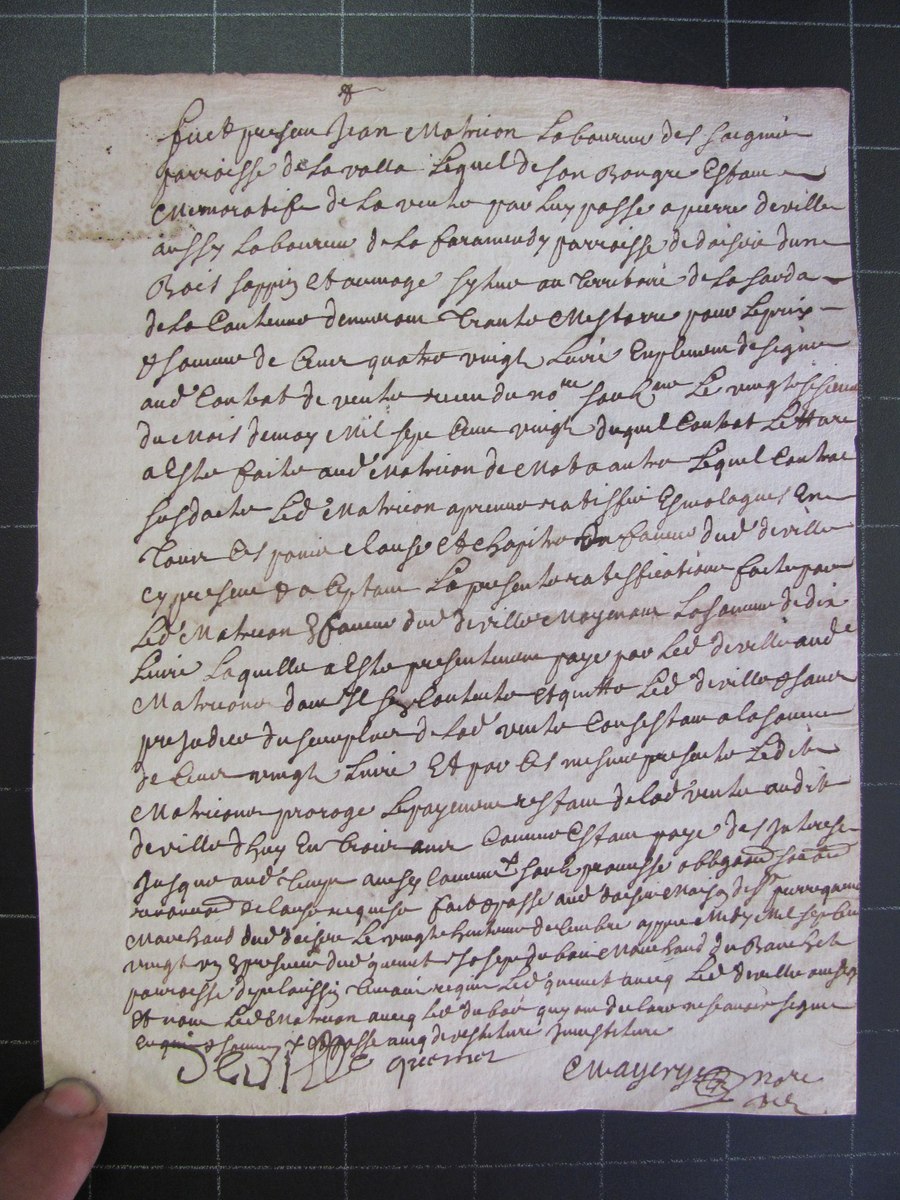 Fut present Jean Matricon Laboureur des Saignes
parroisse de La valla Lequel de son Bongre Estant
Memoratifs de La vente par Luy passe a pierre deville
aussy Laboureur de La faramendy parroisse de doisieu dune
Bois sappin Et aumage sytue au Territoire de La
de La Contenue denviron Trante Mestarre pour Leprix
& somme de Cent quatre vingt Livre Enplement designe
aud Contrat de vente receu du no.re soub.ne Le vingt
du Mois demay Mil sept Cent vingt duquel Contrat Letture
a Esté faite aud Matricon de Mot a autre Lequel Contrat
susdacte Led Matricon apreuve ratiffie Esmologues En
Tous Ces points Clause Et Chapitre En faveur dud deville
Cy present & aCeptant La presente ratiffication faite par
Led Matricon En faveur dud deville Moyenant La somme de dix
Livre Laquelle a Este presentement paye par Led deville aud
Matricon dont Il se Contante Et quitte Led deville & sans
prejudice du surplus de Lad vente Consistant a La somme
de Cent vingt Livre Et par Ces mesme presente Ledit
Matricon proroge Lepayement restant de Lad vente audit
deville dhuy En Trois ans Comme Estant paye des Interest
Jusque aud Temps ainsy Convenu soub promesse obligaon
renonaon & Clause requise fait & passé aud doisieu Maison de Sr pierre
Marchand dud doisieu Le vingt huitieme decembre appres Midy Mil sept Cent
vingt un En presence dud quemet & Joseph dubois Marchand du
parroisse de pelussin Temoins requis Led quemet avecq Led deville ont signe
Et non Led Matricon avecq Led dubois quy ont declare ne scavoir signe
Enquis & sommes & passe avecq devestiture Investiture
Deville quemet Mayery nore